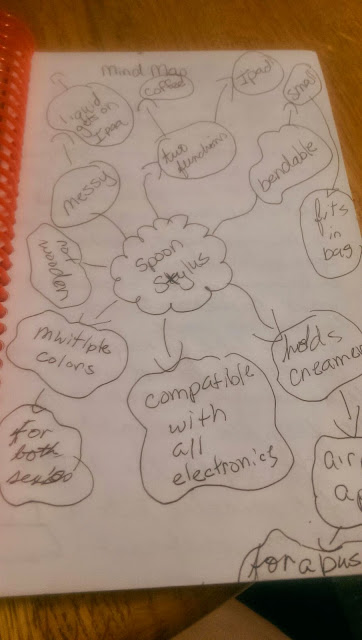 Mind Map
coffee
Ipad
small
liquid
gets on
Ipad
two
functions
bendable
messy
fits
in
bag
not
wooden
Spoon
Stylus
multiple
colors
holds
creamer
compatible
with
all
electronics
for
both
for a